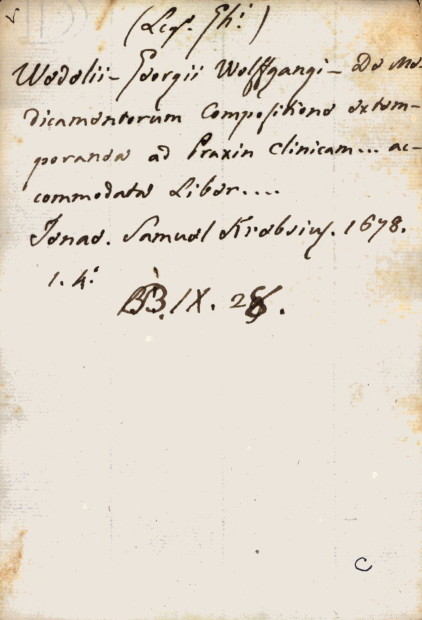 (Leg. Th.)
Wedelii - Georgii Wolffgangi - De Me-
dicamentorum Compositione extem-
poranea ad Praxin Clinicam... ac-
commodata Liber....
Jenae. Samuel Krebsius. 1678.
1. 4.
BB. IX. 28.
C